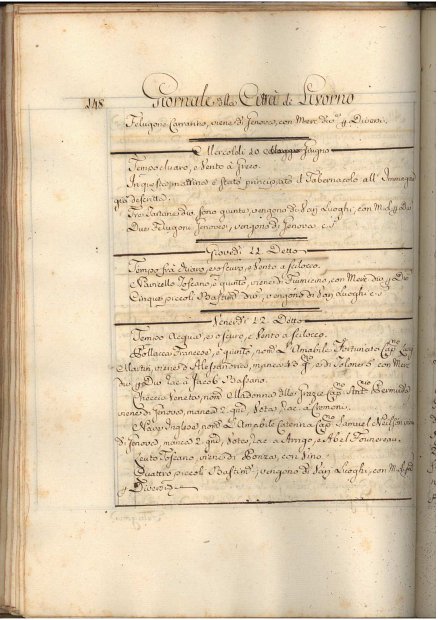 148 Giornale della Città di Livorno
Felugone Carrarino, viene di Genova, con Merc. div.e p Diversi.
Mercoldi 10 Maggio Giugno
Tempo chiaro, e Vento à Greco.
In questa mattina è stato principiato il Tabernacolo all' Immag
gia descritta.
Tre Tartane div. sono giunte, vengono di Varj Luoghi, con M. d. p Di
Due Felugoni Genovesi, vengono di Genova c. s.
Giovedi 11 Detto
Tempo frà chiaro, e oscuro, e Vento a Scilocco.
Navicello Toscano, è giunto, viene di Fiumicino, con Merc. div. p Di
Cinque piccoli Bastim. div. vengono di Varj Luoghi c. s.
Venerdi 12 Detto
Tempo Acqua, e oscuro, e Vento a Scilocco.
Pollacca Francese, è giunta, nom. L'Amabile Fortunato Cap.
Martin, viene d'Alessandria, manca 43 g. e di Coloneo con Merc
div. p Div. rac. a Jacob Bassano.
Checcia Veneta, nom. Madonna delle Grazie Cap. Ant. Bermudo
viene di Genova, manca 2. giri. Vota rac. a Cremoni.
Nave Inglese, nom. L'Amabile Caterina Cap. Samuel Neilson vien
di Genova, manca 2. giri. Vota, rac. a Arrigo, e Abel Fonnereau.
Leuto Toscano, viene di Ponza, con Vino.
Quattro piccoli Bastim. vengono di Varj Luoghi, con M. d.
p Diversi